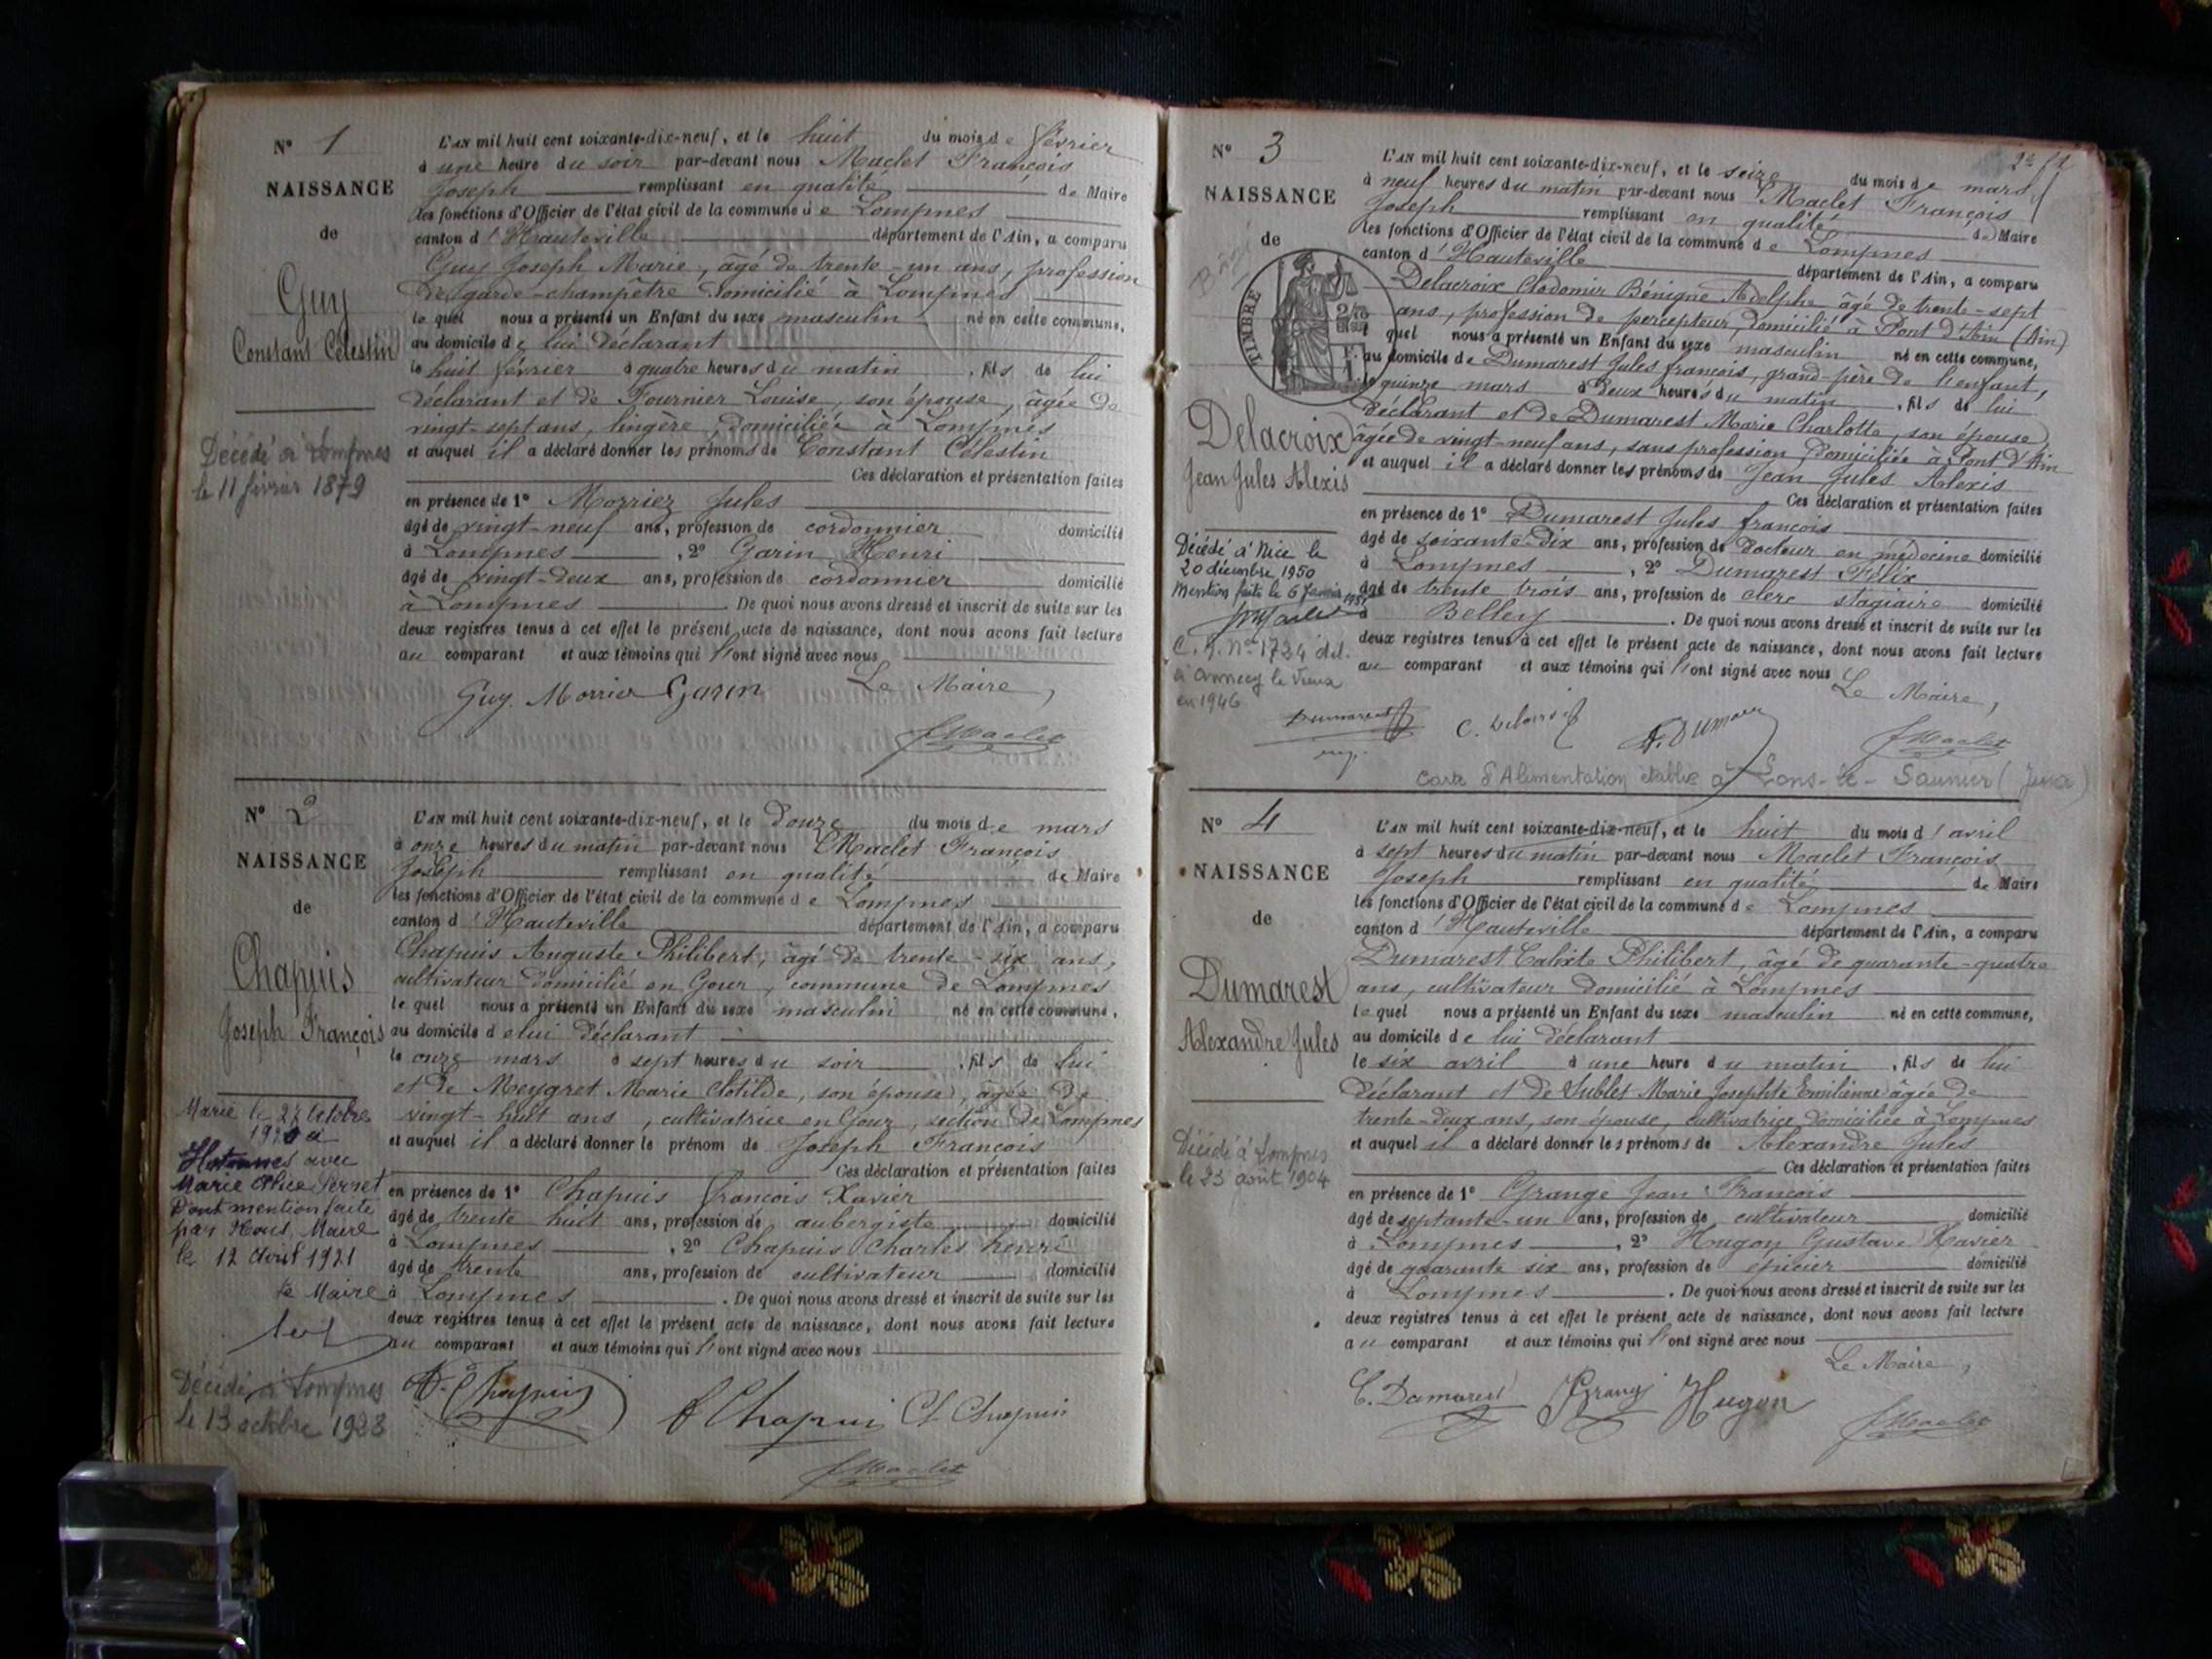 N° 1
NAISSANCE
de
Guy
Constant Célestin
Décédé à Lompnes
le 11 février 1879
L'AN mil huit cent soixante-dix-neuf, et le huit du mois de février
à une heure du soir par-devant nous Maclet François
Joseph remplissant en qualité de Maire
les fonctions d'Officier de l'état civil de la commune de Lompnes
canton d'Hauteville département de l'Ain, a comparu
Guy Joseph Marie, âgé de trente-un ans, profession
de garde-champêtre domicilié à Lompnes
lequel nous a présenté un Enfant du sexe masculin né en cette commune,
au domicile de lui déclarant
le huit février à quatre heures du matin, fils de lui
déclarant et de Fournier Louise, son épouse, âgée de
vingt-sept ans, lingère, domiciliée à Lompnes
et auquel il a déclaré donner les prénoms de Constant Célestin
Ces déclaration et présentation faites
en présence de 1° Morrier Jules
âgé de vingt-neuf ans, profession de cordonnier domicilié
à Lompnes, 2° Garin Henri
âgé de vingt-deux ans, profession de cordonnier domicilié
à Lompnes. De quoi nous avons dressé et inscrit de suite sur les
deux registres tenus à cet effet le présent acte de naissance, dont nous avons fait lecture
au comparant et aux témoins qui l'ont signé avec nous
Le Maire,
Guy Morrier Garin
J Maclet
N° 2
NAISSANCE
de
Chapuis
Joseph François
Marié le 27 Octobre
1920 à
Hotonnes avec
Marie Alice Pernet
Dont mention faite
par Nous, Maire
le 12 Avril 1921
le Maire
Décédé à Lompnes
le 13 octobre 1923
L'AN mil huit cent soixante-dix-neuf, et le douze du mois de mars
à onze heures du matin par-devant nous Maclet François
Joseph remplissant en qualité de Maire
les fonctions d'Officier de l'état civil de la commune de Lompnes
canton d'Hauteville département de l'Ain, a comparu
Chapuis Auguste Philibert, âgé de trente-six ans,
cultivateur domicilié en Gour, commune de Lompnes
lequel nous a présenté un Enfant du sexe masculin né en cette commune,
au domicile de lui déclarant
le onze mars à sept heures du soir, fils de lui
et de Meygret Marie Clotilde, son épouse, âgée de
vingt-huit ans, cultivatrice en Gour, section de Lompnes
et auquel il a déclaré donner le prénom de Joseph François
Ces déclaration et présentation faites
en présence de 1° Chapuis François Xavier
âgé de trente huit ans, profession de aubergiste domicilié
à Lompnes, 2° Chapuis Charles Henri
âgé de trente ans, profession de cultivateur domicilié
à Lompnes. De quoi nous avons dressé et inscrit de suite sur les
deux registres tenus à cet effet le présent acte de naissance, dont nous avons fait lecture
au comparant et aux témoins qui l'ont signé avec nous
A. Chapuis f Chapuis Ch Chapuis
J Maclet
N° 3
NAISSANCE
de
TIMBRE
Delacroix
Jean Jules Alexis
Décédé à Nice le
20 décembre 1950
Mention faite le 6 Janvier 1951
C. I. N° 1724 dél.
à Annecy le Vieux
en 1946
L'AN mil huit cent soixante-dix-neuf, et le seize du mois de mars
à neuf heures du matin par-devant nous Maclet François
Joseph remplissant en qualité de Maire
les fonctions d'Officier de l'état civil de la commune de Lompnes
canton d'Hauteville département de l'Ain, a comparu
Delacroix Clodomir Bénigne Adolphe âgé de trente-sept
ans, profession de percepteur, domicilié à Pont d'Ain (Ain)
quel nous a présenté un Enfant du sexe masculin né en cette commune,
au domicile de Dumarest Jules françois, grand-père de l'enfant,
le quinze mars à deux heures du matin, fils de lui
déclarant et de Dumarest Marie Charlotte, son épouse,
âgée de vingt-neuf ans, sans profession, domiciliée à Pont d'Ain
et auquel il a déclaré donner les prénoms de Jean Jules Alexis
Ces déclaration et présentation faites
en présence de 1° Dumarest Jules françois
âgé de soixante-dix ans, profession de docteur en médecine domicilié
à Lompnes, 2° Dumarest Félix
âgé de trente trois ans, profession de clerc stagiaire domicilié
à Belley. De quoi nous avons dressé et inscrit de suite sur les
deux registres tenus à cet effet le présent acte de naissance, dont nous avons fait lecture
au comparant et aux témoins qui l'ont signé avec nous
Le Maire,
Dumarest
J Maclet
Carte d'Alimentation établie à Lons-le-Saunier (Jura)
N° 4
NAISSANCE
de
Dumarest
Alexandre Jules
Décédé à Lompnes
le 23 août 1904
L'AN mil huit cent soixante-dix-neuf, et le huit du mois d'avril
à sept heures du matin par-devant nous Maclet François
Joseph remplissant en qualité de Maire
les fonctions d'Officier de l'état civil de la commune de Lompnes
canton d'Hauteville département de l'Ain, a comparu
Dumarest Calixte Philibert, âgé de quarante-quatre
ans, cultivateur domicilié à Lompnes
lequel nous a présenté un Enfant du sexe masculin né en cette commune,
au domicile de lui déclarant
le six avril à une heure du matin, fils de lui
déclarant et de Sublet Marie Josephte Emilienne âgée de
trente-deux ans, son épouse, cultivatrice domiciliée à Lompnes
et auquel il a déclaré donner les prénoms de Alexandre Jules
Ces déclaration et présentation faites
en présence de 1° Grange Jean François
âgé de septante-un ans, profession de cultivateur domicilié
à Lompnes, 2° Hugon Gustave Xavier
âgé de quarante six ans, profession de épicier domicilié
à Lompnes. De quoi nous avons dressé et inscrit de suite sur les
deux registres tenus à cet effet le présent acte de naissance, dont nous avons fait lecture
au comparant et aux témoins qui l'ont signé avec nous
Le Maire,
C. Dumarest Grange Hugon
J Maclet